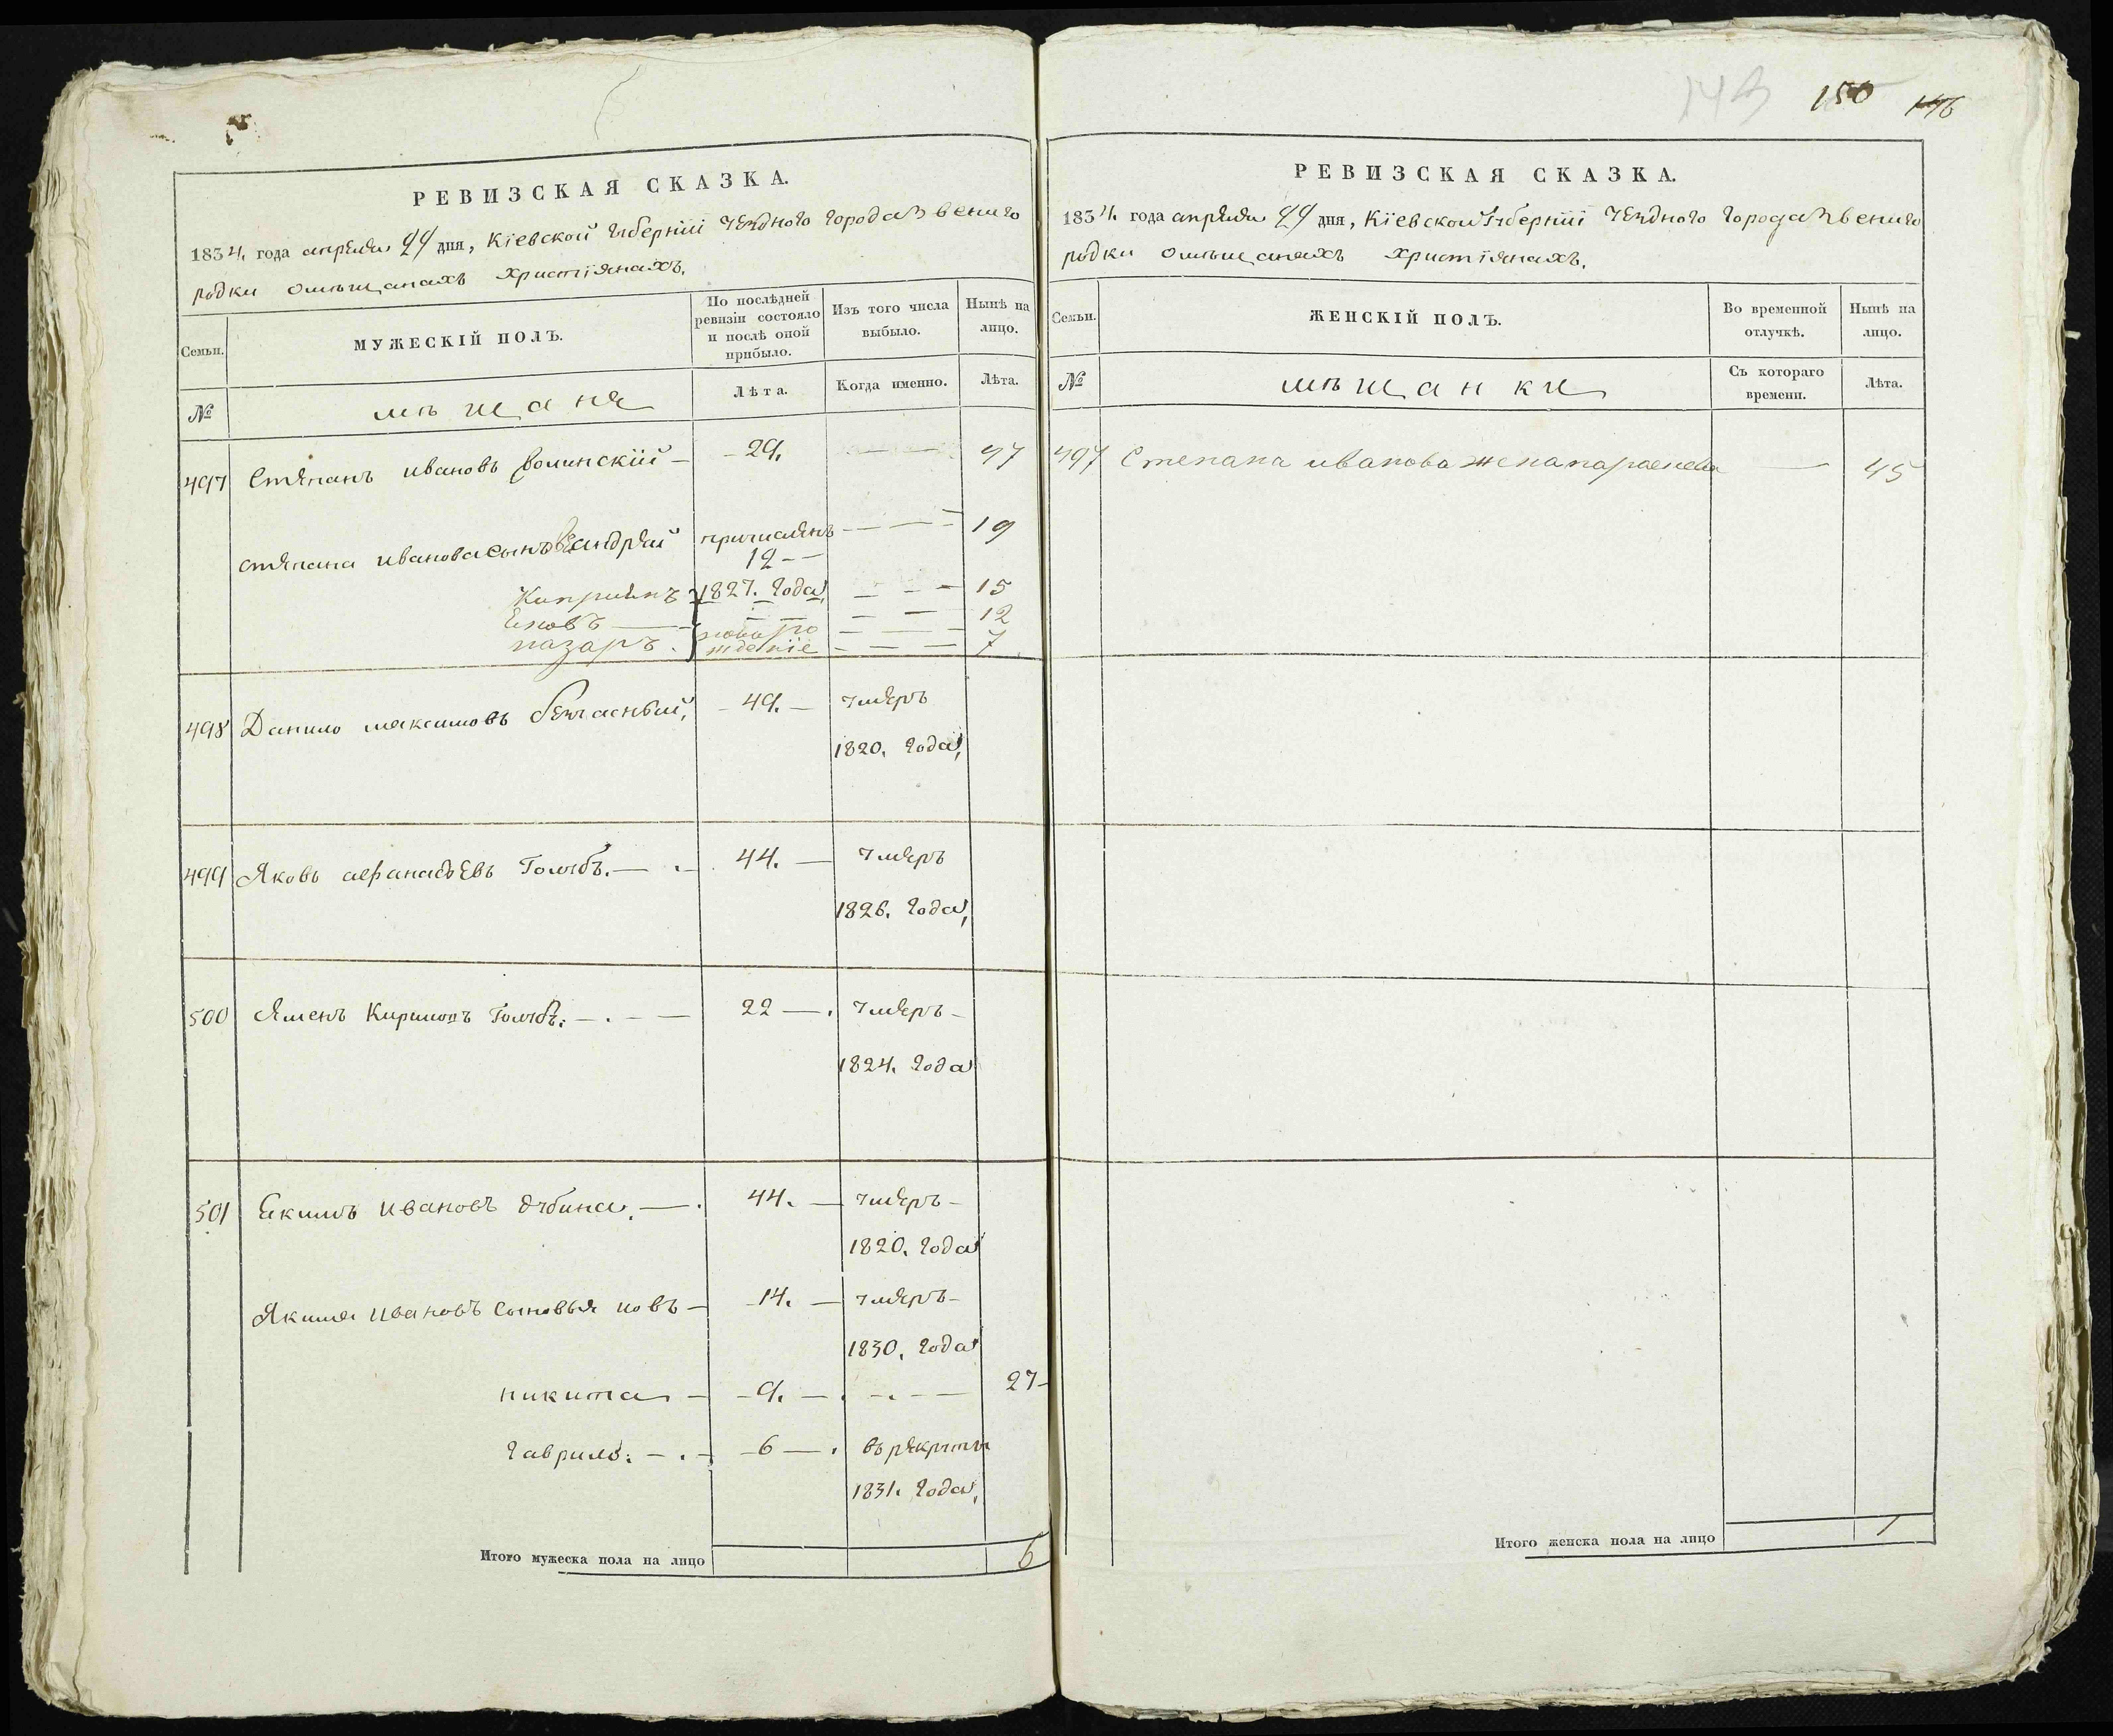 143 150 146
РЕВИЗСКАЯ СКАЗКА.
1834. года апреля 24 дня, Кіевской губерніи уезднаго города Звениго
родки омѣщанахъ христіянахъ.
Семьи.
МУЖЕСКІЙ ПОЛЪ.
По послѣдней
ревизіи состояло
и послѣ оной
прибыло.
Изъ того числа
выбыло.
Нынѣ на
лицо.
№
мѣщаня
Лѣта.
Когда именно.
Лѣта.
497 Степанъ ивановъ волинскій — 29. — — 47
степана иванова сыновя андрей причисленъ — — 19
12 —
Киприянъ 1827. года, — — 15
— — 12
назаръ. ново ро — —
ждение — — — 7
498 Данило максимовъ безчасный, — 49. — умеръ
1820. года,
499 Яковъ афанасьевъ Голубъ. — 44. — умеръ
1826. года,
500 Кириловъ Голубъ. — 22 — умеръ —
1824. года
501 Екимъ ивановъ дубина. — 44. — умеръ —
1820. года
Якима ивановъ сыновья иовъ — 14. — умеръ —
1830. года
никита — 9. — — — 27 —
гаврило. — 6 — въ рекруты
1831. года,
Итого мужеска пола на лицо 6
РЕВИЗСКАЯ СКАЗКА.
1834. года апреля 24 дня, Кіевской губерніи уезднаго города Звениго
родки омѣщанахъ христіянахъ.
Семьи.
ЖЕНСКІЙ ПОЛЪ.
Во временной
отлучкѣ.
Нынѣ на
лицо.
№
мѣщанки
Съ котораго
времени.
Лѣта.
497 Степана иванова жена — 45
Итого женска пола на лицо 1